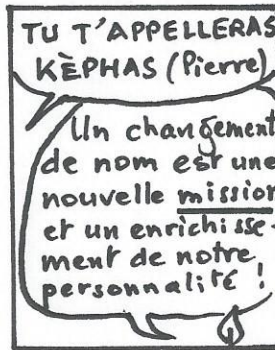 TU T'APPELLERAS
KÈPHAS (Pierre)
Un changement
de nom est une
nouvelle mission
et un enrichisse-
ment de notre
personnalité !